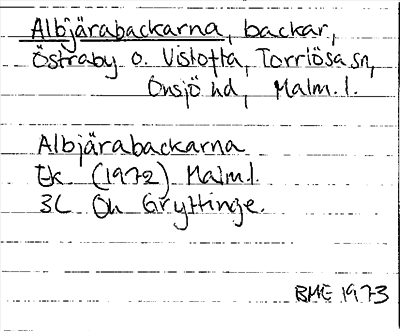 Albjärabackarna, backar,
Östraby o. Vistofta, Torrlösa sn,
Onsjö hd, Malm. l.
Albjärabackarna
Ek (1972) Malm l.
3C On Gryttinge.
BME 1973